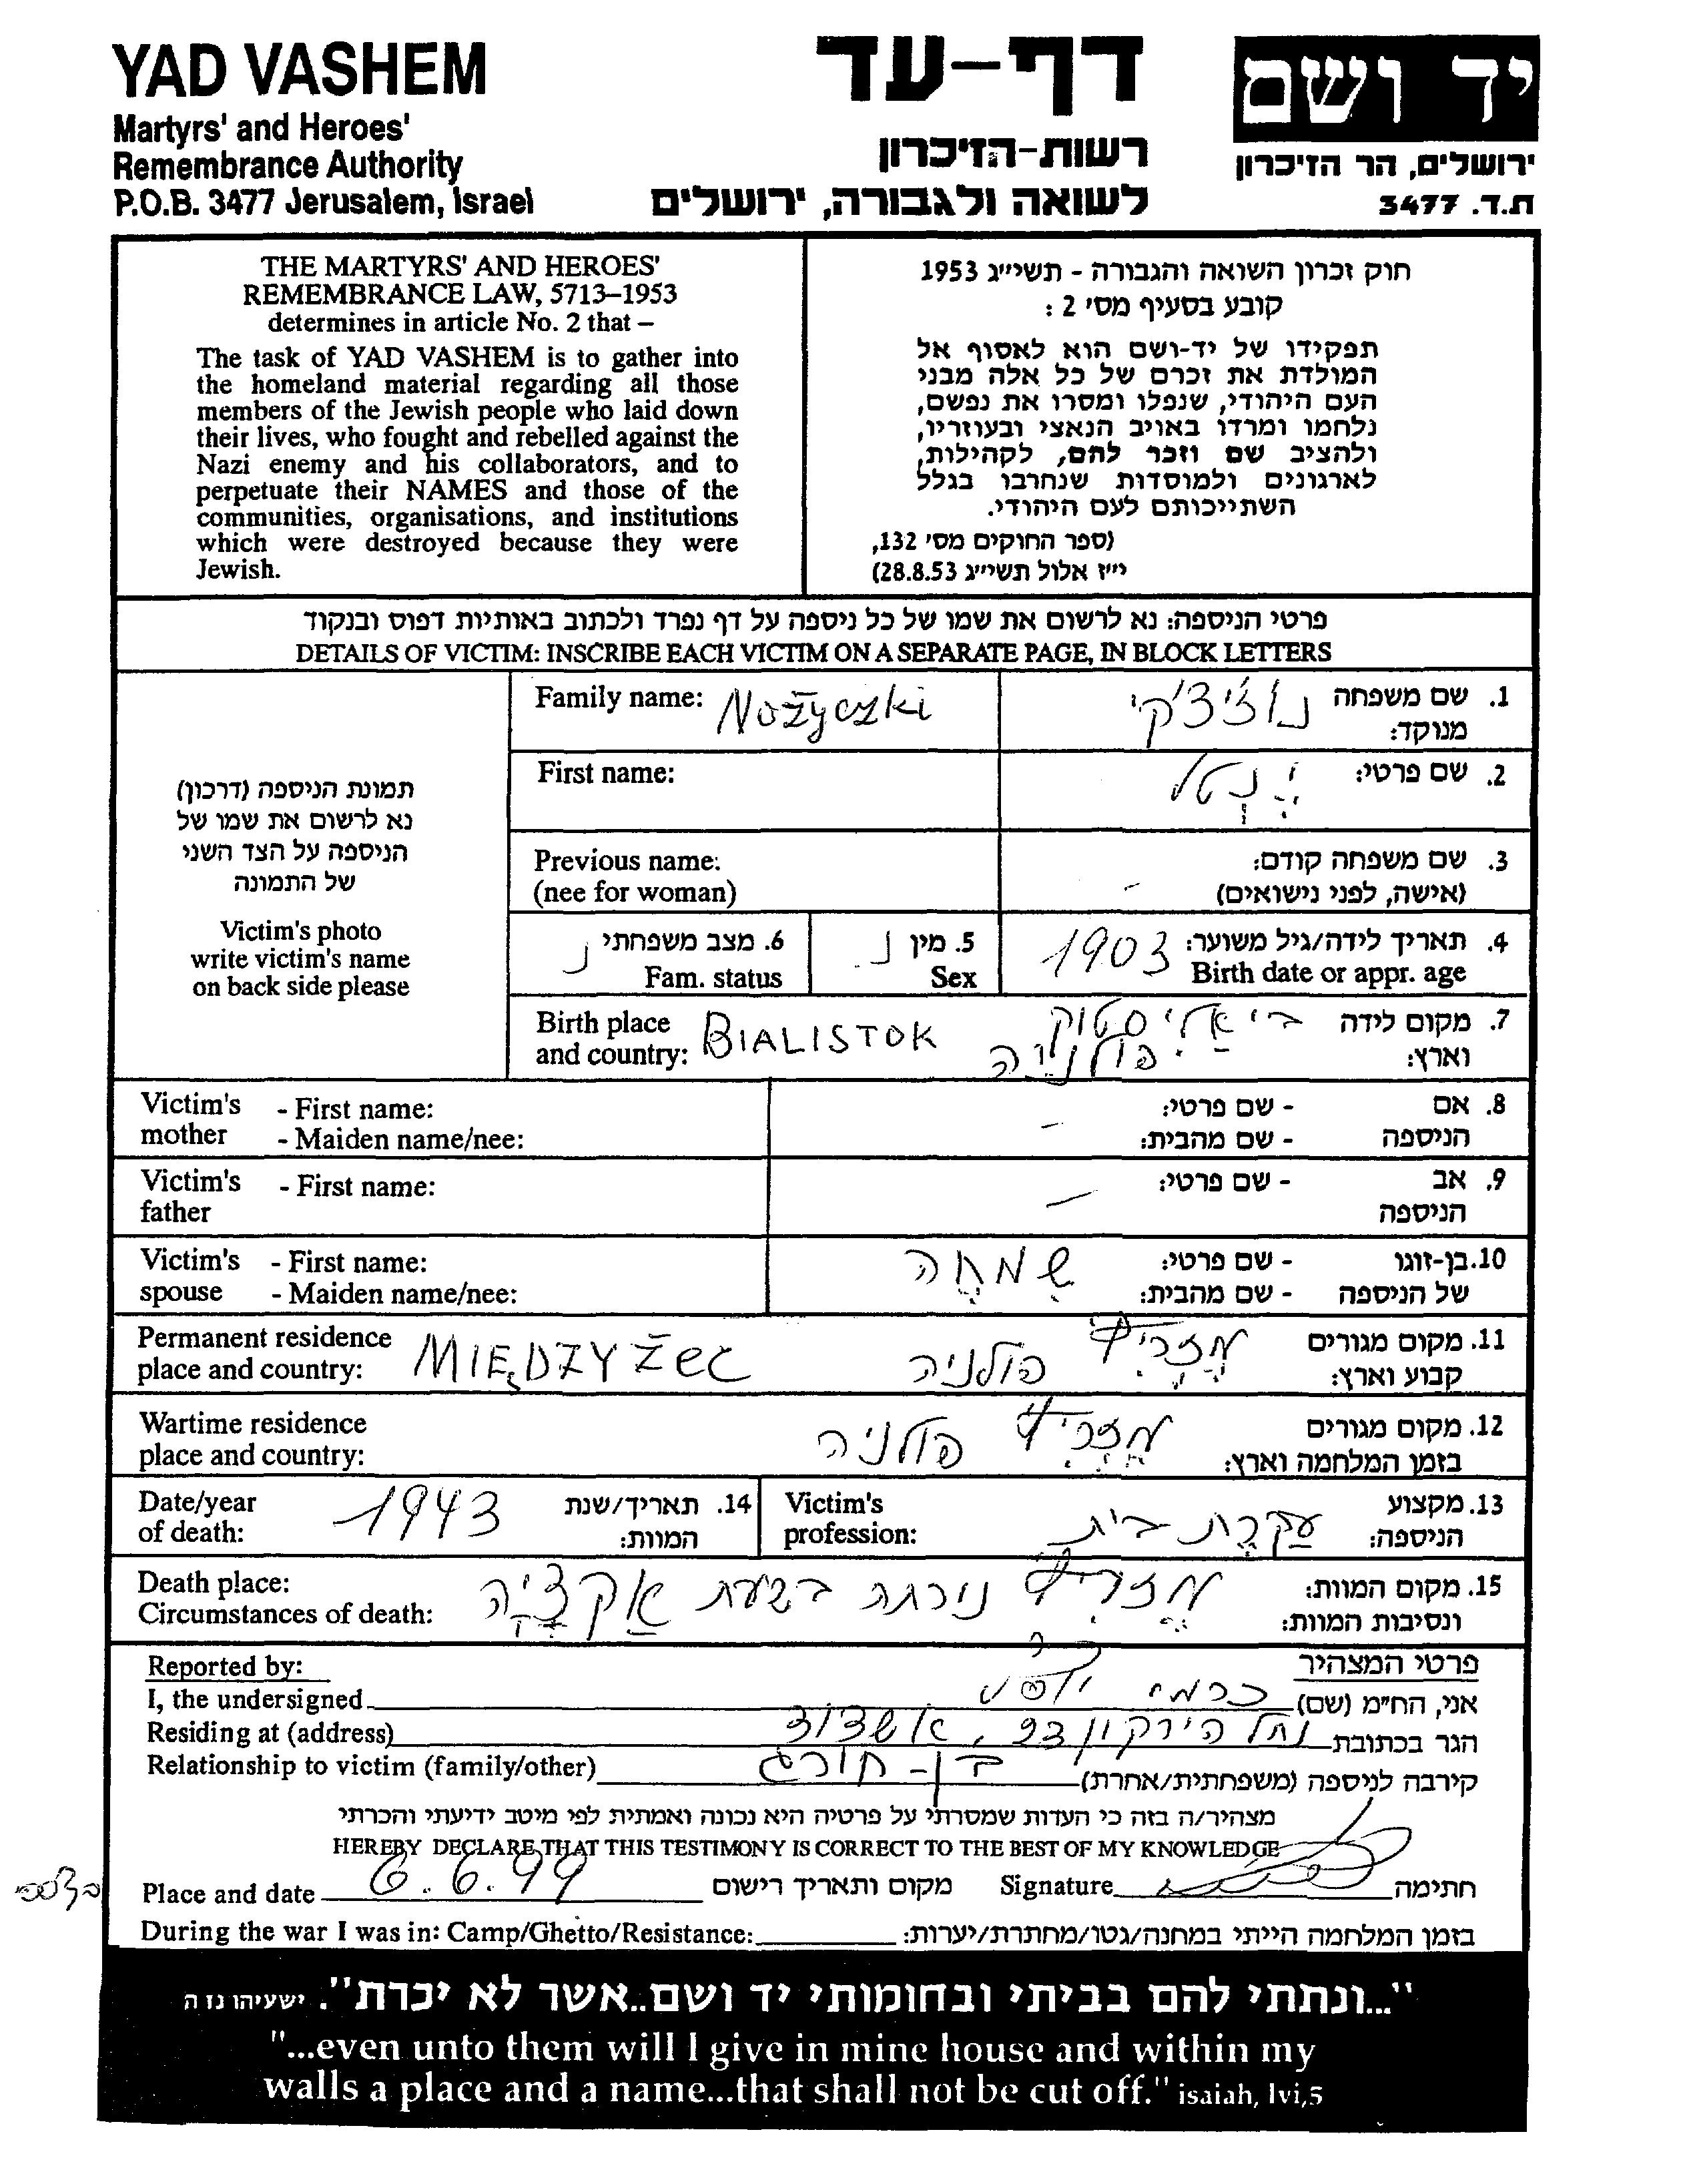 YAD VASHEM
Martyrs' and Heroes'
Remembrance Authority
P.O.B. 3477 Jerusalem, Israel
דף-עד
רשות-הזיכרון
לשואה ולגבורה, ירושלים
יד ושם
ירושלים, הר הזיכרון
ת.ד. 3477
THE MARTYRS' AND HEROES'
REMEMBRANCE LAW, 5713–1953
determines in article No. 2 that –
The task of YAD VASHEM is to gather into
the homeland material regarding all those
members of the Jewish people who laid down
their lives, who fought and rebelled against the
Nazi enemy and his collaborators, and to
perpetuate their NAMES and those of the
communities, organisations, and institutions
which were destroyed because they were
Jewish.
חוק זכרון השואה והגבורה - תשי״ג 1953
קובע בסעיף מס׳ 2 :
תפקידו של יד-ושם הוא לאסוף אל
המולדת את זכרם של כל אלה מבני
העם היהודי, שנפלו ומסרו את נפשם,
נלחמו ומרדו באויב הנאצי ובעוזריו,
ולהציב שם וזכר להם, לקהילות,
לארגונים ולמוסדות שנחרבו בגלל
השתייכותם לעם היהודי.
(ספר החוקים מס׳ 132,
י״ז אלול תשי״ג 28.8.53)
פרטי הניספה: נא לרשום את שמו של כל ניספה על דף נפרד ולכתוב באותיות דפוס ובנקוד
DETAILS OF VICTIM: INSCRIBE EACH VICTIM ON A SEPARATE PAGE, IN BLOCK LETTERS
תמונת הניספה (דרכון)
נא לרשום את שמו של
הניספה על הצד השני
של התמונה
Victim's photo
write victim's name
on back side please
Family name: Nożyczki
1. שם משפחה מנוקד: נוז׳יצ׳קי
First name:
2. שם פרטי: יֶנְטל
Previous name:
(nee for woman)
3. שם משפחה קודם: -
(אישה, לפני נישואים)
4. תאריך לידה/גיל משוער: 1903
Birth date or appr. age
5. מין נ.
Sex
6. מצב משפחתי נ
Fam. status
Birth place
and country: BIALISTOK
7. מקום לידה ביאַליסטוק
וארץ: פולניה
Victim's mother - First name:
- Maiden name/nee:
8. אם הניספה - שם פרטי: -
- שם מהבית:
Victim's father - First name:
9. אב הניספה - שם פרטי: -
Victim's spouse - First name:
- Maiden name/nee:
10. בן-זוגו של הניספה - שם פרטי: שִמחָה
- שם מהבית:
Permanent residence
place and country: MIĘDZYŻEC
11. מקום מגורים
קבוע וארץ: מֶזְריץ פולניה
Wartime residence
place and country:
12. מקום מגורים
בזמן המלחמה וארץ: מֶזְריץ פולניה
Date/year
of death: 1943
14. תאריך/שנת
המוות:
Victim's
profession:
13. מקצוע
הניספה: עַקֶרֶת בית
Death place:
Circumstances of death:
15. מקום המוות:
ונסיבות המוות: מֶזְריץ נורתה בשעת אַקְצִיָה
Reported by:
פרטי המצהיר
I, the undersigned
אני, הח״מ (שם) כרמי
Residing at (address)
הגר בכתובת נחל הירקון 23, אשדוד
Relationship to victim (family/other)
קירבה לניספה (משפחתית/אחרת) בן-חורג
מצהיר/ה בזה כי העדות שמסרתי על פרטיה היא נכונה ואמתית לפי מיטב ידיעתי והכרתי
HEREBY DECLARE THAT THIS TESTIMONY IS CORRECT TO THE BEST OF MY KNOWLEDGE
Place and date 6.6.99 מקום ותאריך רישום Signature חתימה
During the war I was in: Camp/Ghetto/Resistance: בזמן המלחמה הייתי במחנה/גטו/מחתרת/יערות:
"...ונתתי להם בביתי ובחומותי יד ושם..אשר לא יכרת". ישעיהו נו ה
"...even unto them will I give in mine house and within my
walls a place and a name...that shall not be cut off." isaiah, lvi,5